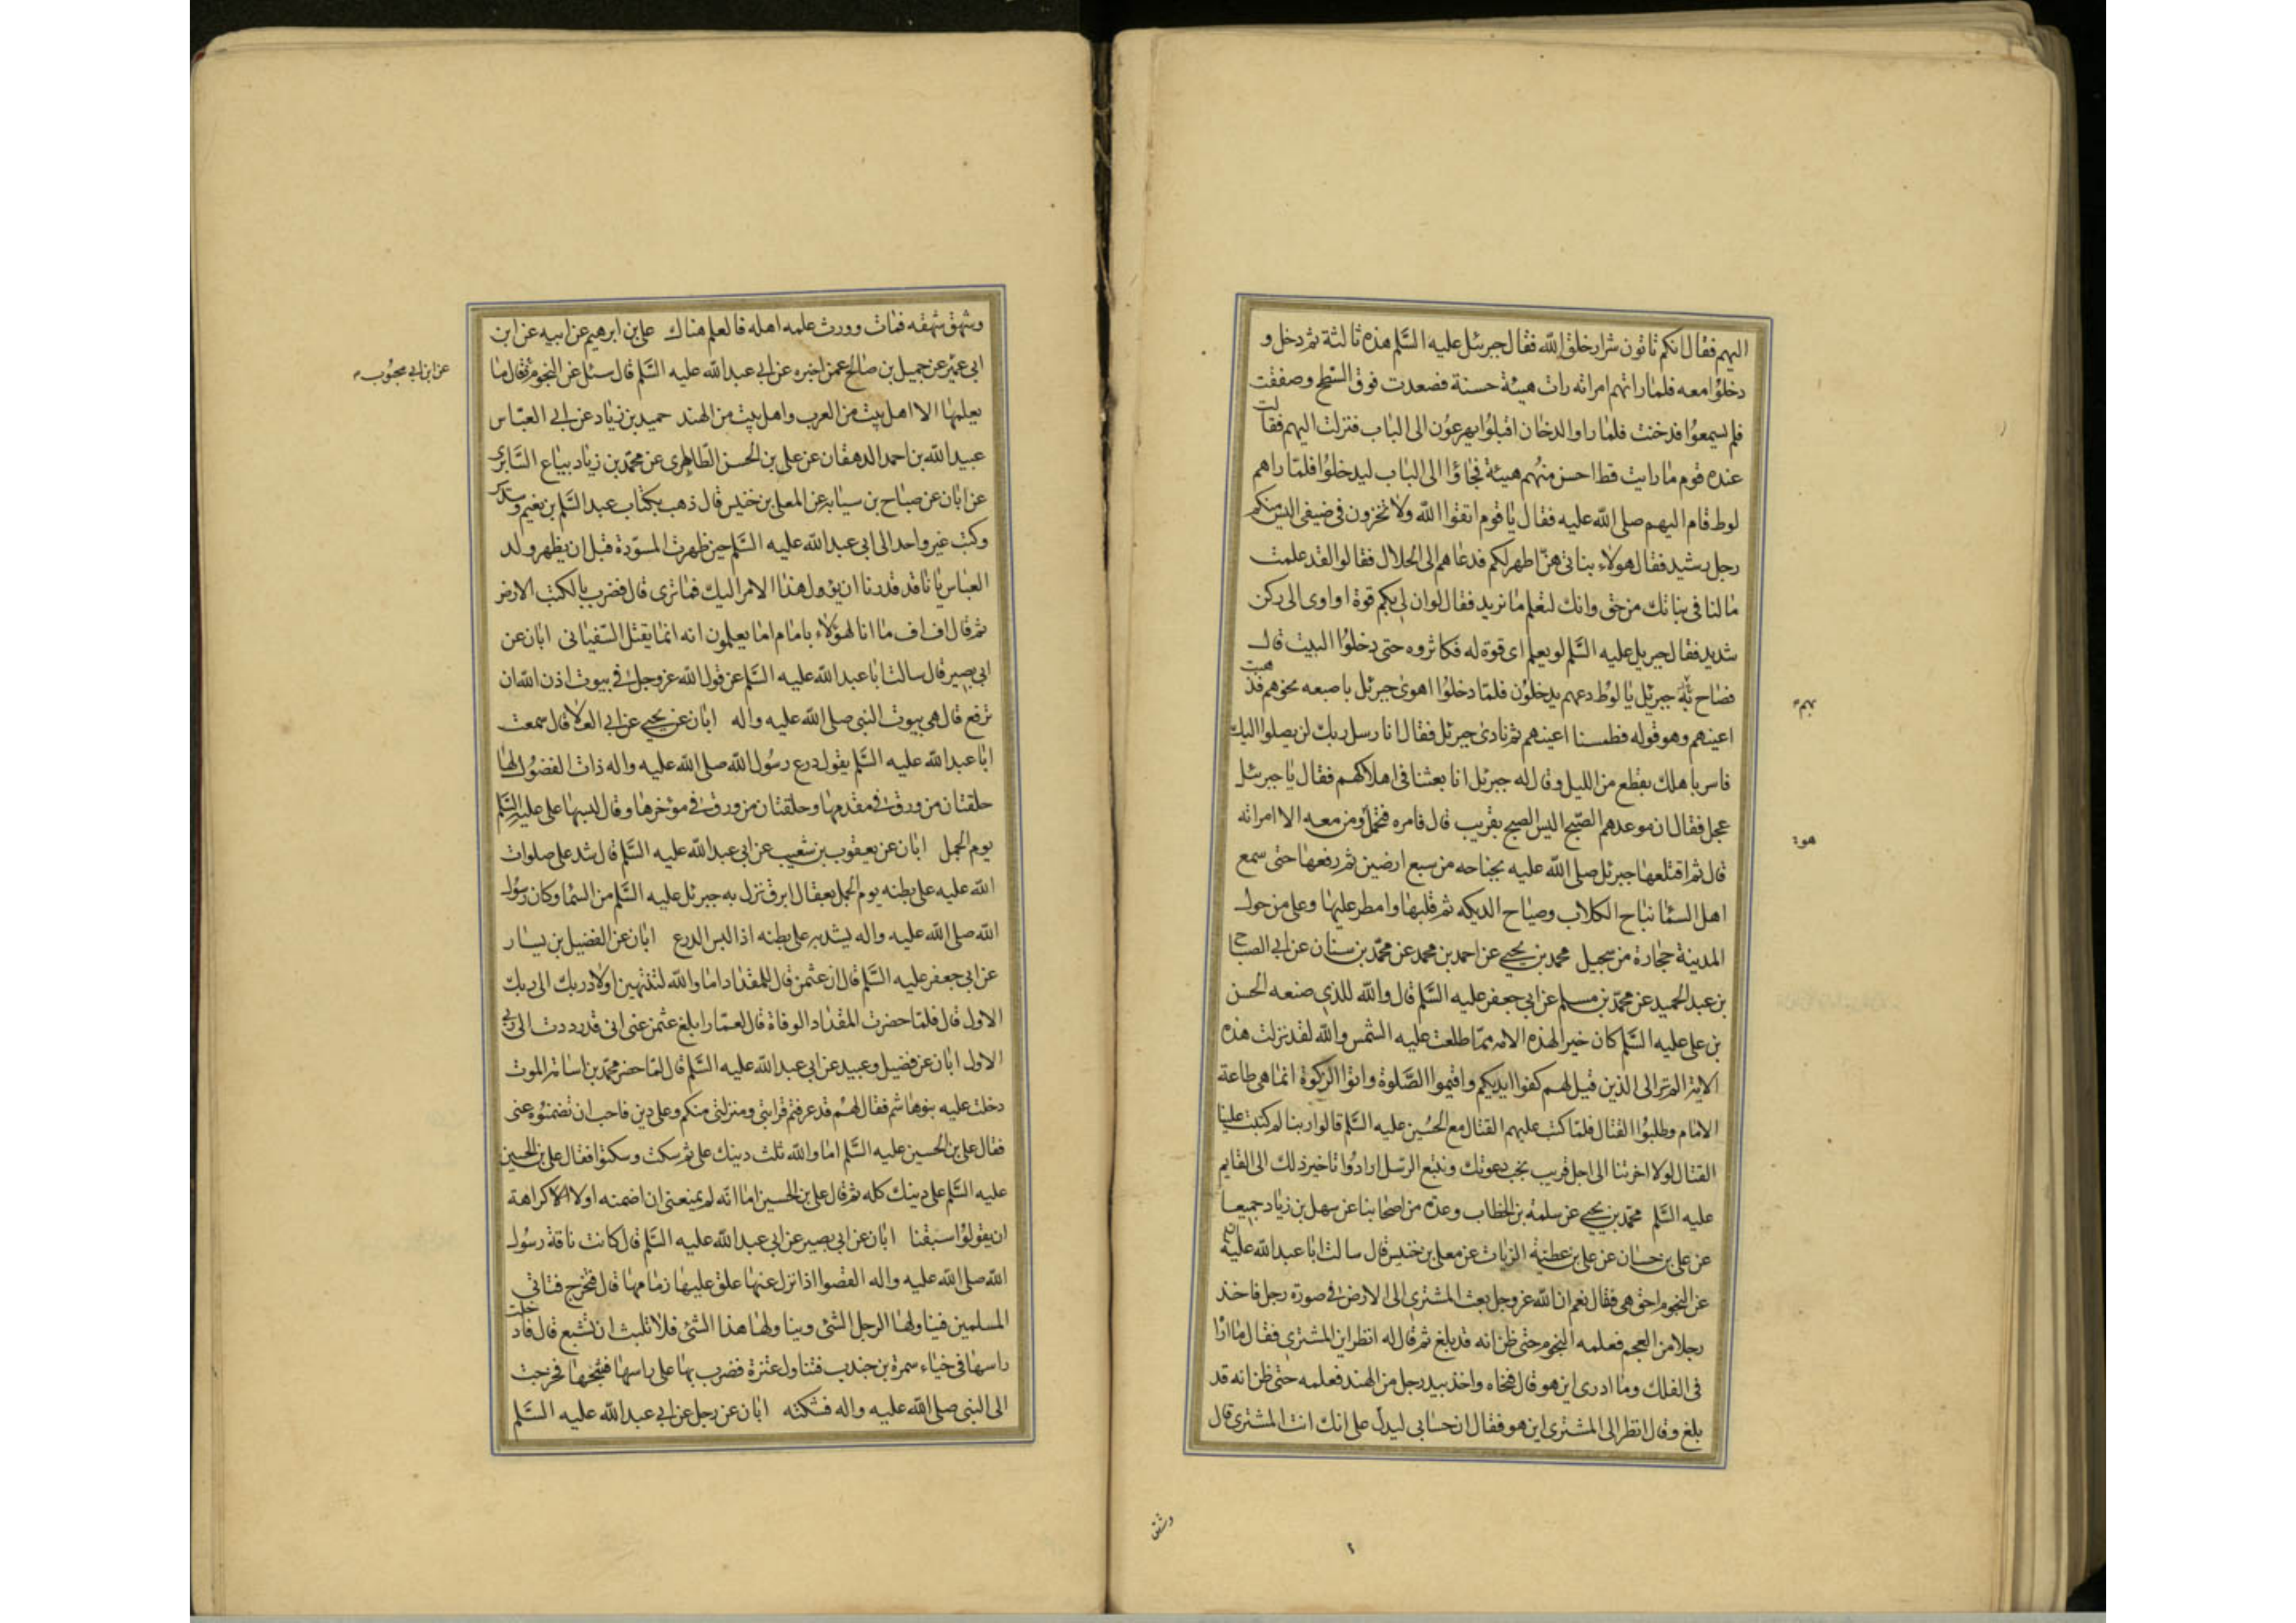 اليهم فقال انكم تاتون شرار خلق الله فقال جبرئيل عليه السلم هذه ثالثة ثم دخل و
دخلوا معه فلما راتهم امراته رات هيئة حسنة فصعدت فوق السطح وصفقت
فلم يسمعوا فدخنت فلما راوا الدخان اقبلوا يهرعون الى الباب فنزلت اليهم فقالت
عنده قوم ما رايت قط احسن منهم هيئة فجاؤا الى الباب ليدخلوا فلما راهم
لوط قام اليهم صلى الله عليه فقال يا قوم اتقوا الله ولا تخزون في ضيفى اليس منكم
رجل رشيد فقال هولاء بناتى هن اطهر لكم فدعاهم الى الحلال فقالوا لقد علمت
ما لنا فى بناتك من حق وانك لتعلم ما نريد فقال لو ان لى بكم قوة او اوى الى ركن
شديد فقال جبريل عليه السلم لو يعلم اى قوة له فكاثروه حتى دخلوا البيت قال
فصاح به جبرئيل يا لوط دعهم يدخلون فلما دخلوا اهوى جبرئيل باصبعه نحوهم فذهبت
اعينهم وهو قوله فطمسنا اعينهم ثم نادى جبرئيل فقال انا رسل ربك لن يصلوا اليك
فاسر باهلك بقطع من الليل وقال له جبرئيل انا بعثنا فى اهلاكهم فقال يا جبرئيل
عجل فقال ان موعدهم الصبح اليس الصبح بقريب قال فامره فتحمل ومن معه الا امراته
قال ثم اقتلعها جبرئيل صلى الله عليه بجناحه من سبع ارضين ثم رفعها حتى سمع
اهل السما نباح الكلاب وصياح الديكه ثم قلبها وامطر عليها وعلى من حول
المدينة حجارة من سجيل محمد بن يحيى عن احمد بن محمد عن محمد بن سنان عن ابى الصباح
بن عبد الحميد عن محمد بن مسلم عن ابى جعفر عليه السلم قال والله للذى صنعه الحسن
بن على عليه السلم كان خيرا لهذه الامه مما طلعت عليه الشمس والله لقد نزلت هذه
الاية الم تر الى الذين قيل لهم كفوا ايديكم واقيموا الصلوة واتوا الزكوة انما هى طاعة
الامام وطلبوا القتال فلما كتب عليهم القتال مع الحسين عليه السلم قالوا ربنا لم كتبت علينا
القتال لولا اخرتنا الى اجل قريب نجب دعوتك ونتبع الرسل ارادوا تاخير ذلك الى القايم
عليه السلم محمد بن يحيى عن سلمة بن الخطاب وعدة من اصحابنا عن سهل بن زياد جميعا
عن على بن حسان عن على بن عطية الزيات عن معلى بن خنيس قال سالت ابا عبد الله عليه السلم
عن النجوم احق هى فقال نعم ان الله عز وجل بعث المشترى الى الارض فى صورة رجل فاخذ
رجلا من العجم فعلمه النجوم حتى ظن انه قد بلغ ثم قال له انظر اين المشترى فقال ما اراه
فى الفلك وما ادرى اين هو قال فنحاه واخذ بيد رجل من الهند فعلمه حتى ظن انه قد
بلغ وقال انظر الى المشترى اين هو فقال ان حسابى ليدل على انك انت المشترى قال
بهم
هو
وشهق
وشهق شهقه فمات وورث علمه اهله فالعلم هناك على بن ابرهيم عن ابيه عن ابن
ابى عمير عن جميل بن صالح عمن اخبره عن ابى عبد الله عليه السلم قال سئل عن النجوم فقال ما
يعلمها الا اهل بيت من العرب واهل بيت من الهند حميد بن زياد عن ابى العباس
عبيد الله بن احمد الدهقان عن على بن الحسن الطاطرى عن محمد بن زياد بياع السابرى
عن ابان عن صباح بن سيابه عن المعلى بن خنيس قال ذهب بكتاب عبد السلم بن نعيم وسدير
وكتب غير واحد الى ابى عبد الله عليه السلم حين ظهرت المسودة قبل ان يظهر ولد
العباس بانا قد قدرنا ان يؤول هذا الامر اليك فما ترى قال فضرب بالكتب الارض
ثم قال اف اف ما انا لهؤلاء بامام اما يعلمون انه انما يقتل السفيانى ابان عن
ابى بصير قال سالت ابا عبد الله عليه السلم عن قول الله عز وجل فى بيوت اذن الله ان
ترفع قال هى بيوت النبى صلى الله عليه واله ابان عن يحيى عن ابى العلا قال سمعت
ابا عبد الله عليه السلم يقول درع رسول الله صلى الله عليه واله ذات الفضول لها
حلقتان من ورق فى مقدمها وحلقتان من ورق فى مؤخرها وقال لبسها على عليه السلم
يوم الجمل ابان عن يعقوب بن شعيب عن ابى عبد الله عليه السلم قال شد على صلوات
الله عليه على بطنه يوم الجمل بعقال ابرق نزل به جبرئيل عليه السلم من السما وكان رسول
الله صلى الله عليه واله يشد به على بطنه اذا لبس الدرع ابان عن الفضيل بن يسار
عن ابى جعفر عليه السلم قال ان عثمن قال للمقداد اما والله لتنتهين او لاردنك الى ربك
الاول قال فلما حضرت المقداد الوفاة قال لعمار ابلغ عثمن عنى انى قد رددت الى ربى
الاول ابان عن فضيل وعبيد عن ابى عبد الله عليه السلم قال لما حضر محمد بن اسامة الموت
دخلت عليه بنو هاشم فقال لهم قد عرفتم قرابتى ومنزلتى منكم وعلى دين فاحب ان تضمنوه عنى
فقال على بن الحسين عليه السلم اما والله ثلث دينك على ثم سكت وسكتوا فقال على بن الحسين
عليه السلم على دينك كله ثم قال على بن الحسين اما انه لم يمنعنى ان اضمنه اولا الا كراهة
ان يقولوا سبقنا ابان عن ابى بصير عن ابى عبد الله عليه السلم قال كانت ناقة رسول
الله صلى الله عليه واله القصوا اذا نزل عنها علق عليها زمامها قال فتخرج فتاتى
المسلمين فيناولها الرجل الشئ ويناولها هذا الشئ فلا تلبث ان تشبع قال فادخلت
راسها فى خباء سمرة بن جندب فتناول عنزة فضرب بها على راسها فشجها فخرجت
الى النبى صلى الله عليه واله فشكته ابان عن رجل عن ابى عبد الله عليه السلم